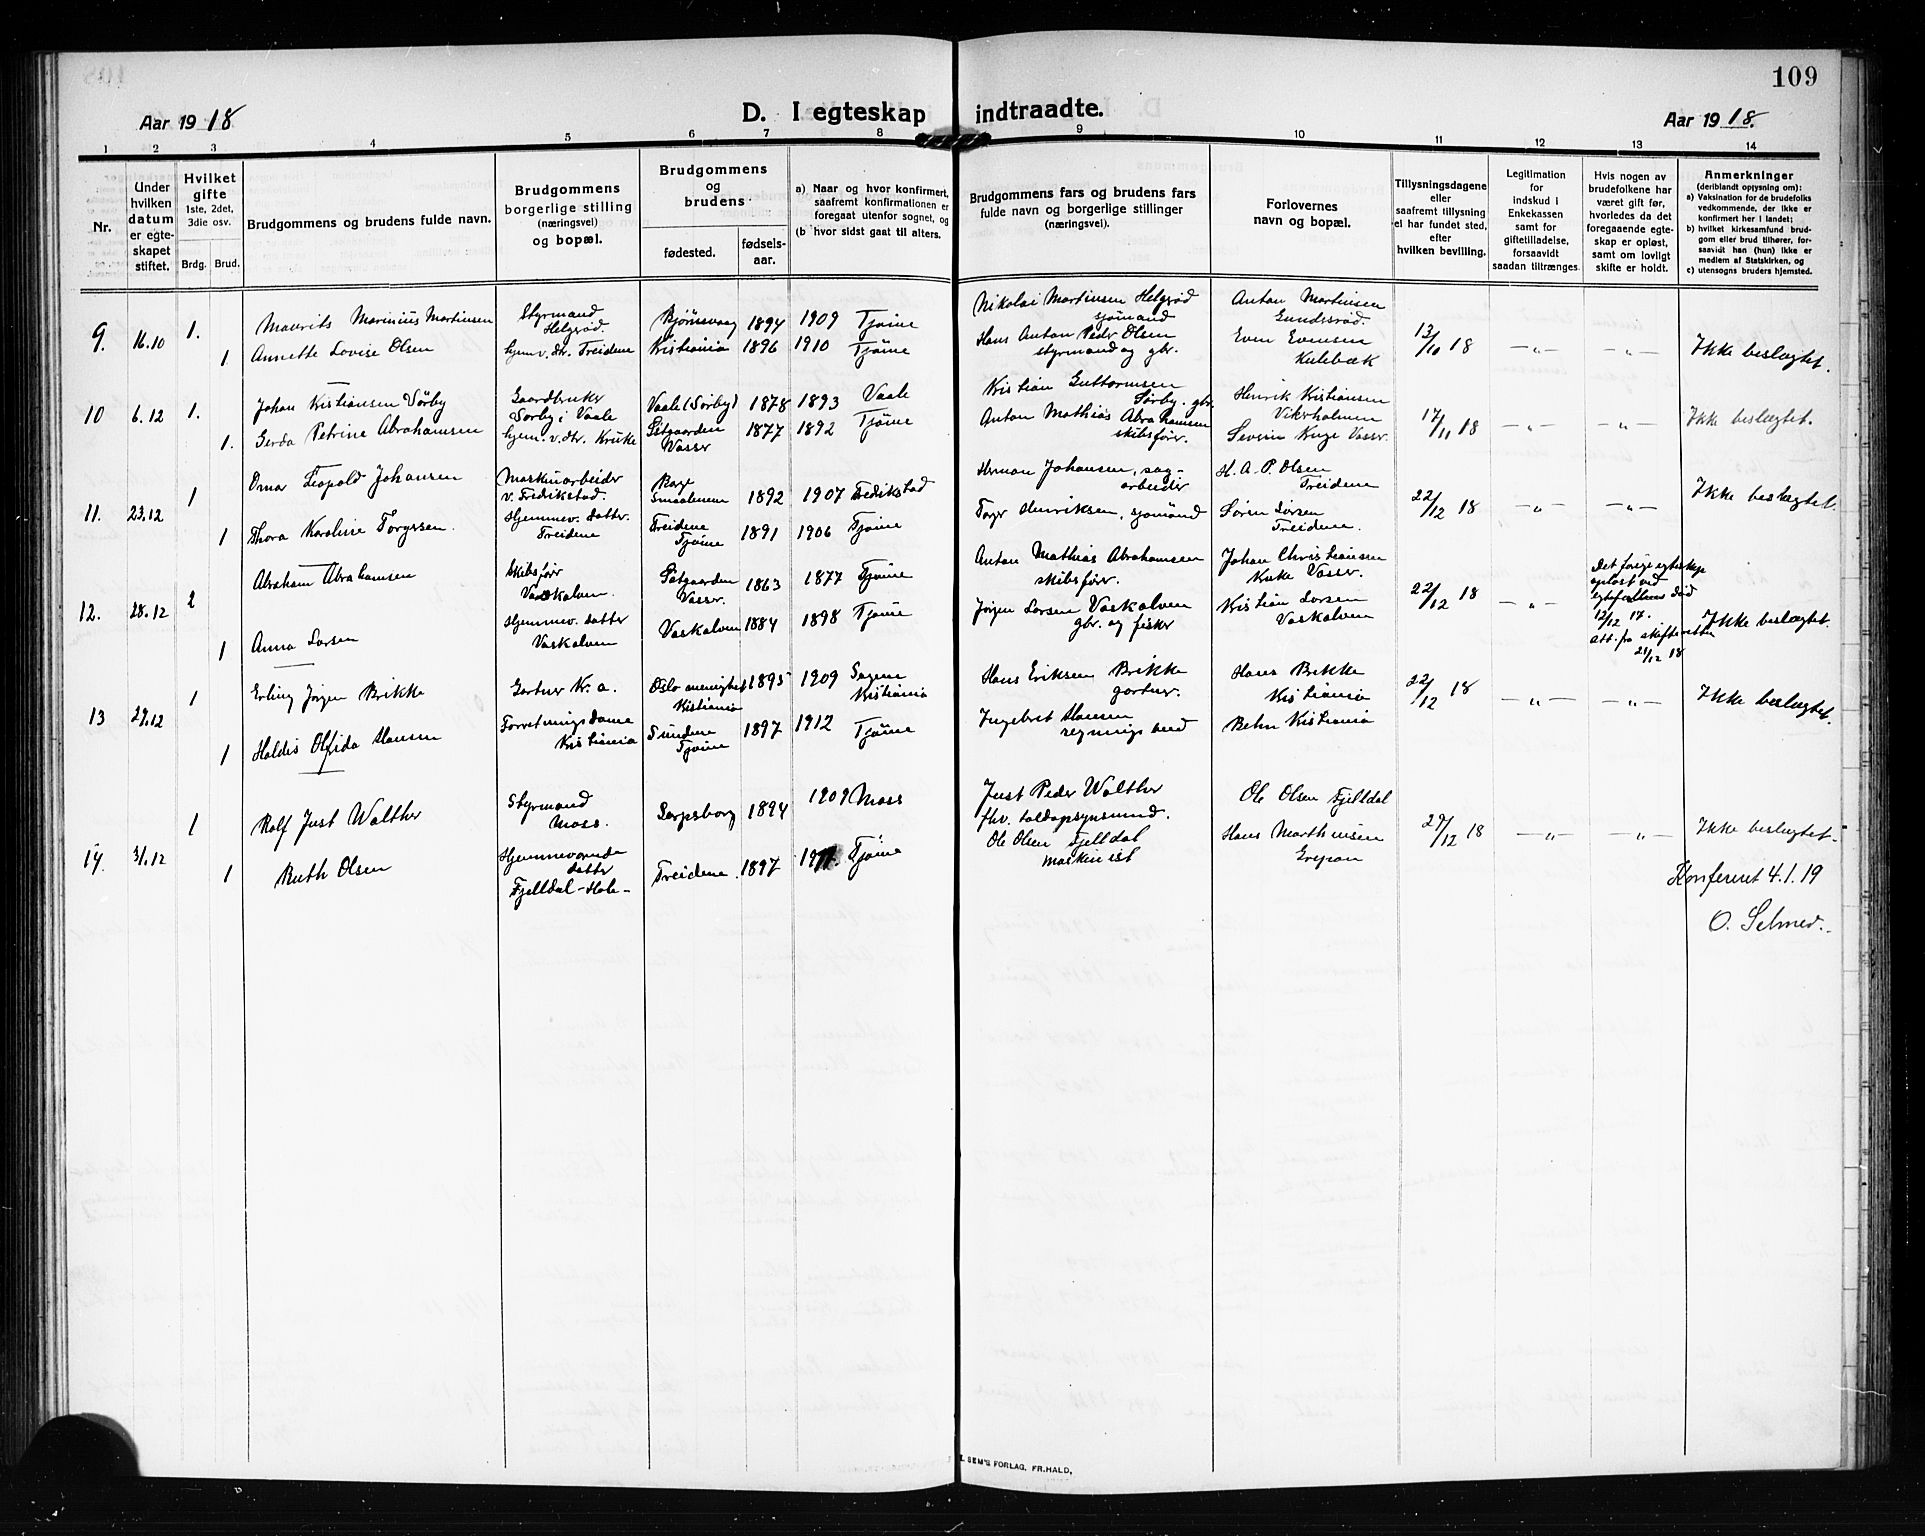 109
Aar 1918
D. I egteskap indtraadte.
Aar 1918.
1 2 3 4 5 6 7 8 9 10 11 12 13 14
Nr.
Under hvilken datum er egteskapet stiftet.
Hvilket gifte 1ste, 2det, 3die osv.
Brdg. Brud.
Brudgommens og brudens fulde navn.
Brudgommens borgerlige stilling (næringsvei) og bopæl.
Brudgommens og brudens
fødested.
fødselsaar.
a) Naar og hvor konfirmert, saafremt konfirmationen er foregaat utenfor sognet, og
(b hvor sidst gaat til alters.
Brudgommens fars og brudens fars fulde navn og borgerlige stillinger (næringsvei).
Forlovernes navn og bopæl.
Tillysningsdagene eller saafremt tillysning ei har fundet sted, efter hvilken bevilling.
Legitimation for indskud i Enkekassen samt for giftetilladelse, forsaavidt saadan tiltrænges.
Hvis nogen av brudefolkene har været gift før, hvorledes da det foregaaende egteskap er opløst, samt om lovligt skifte er holdt.
Anmerkninger
(deriblandt opysning om):
a) Vaksination for de brudefolks vedkommende, der ikke er konfirmert her i landet;
b) hvilket kirkesamfund brudgom eller brud tilhører, forsaavidt han (hun) ikke er medlem af Statskirken, og
c) utensogns bruders hjemsted.
9. 16.10 1. Maurits Marinius Martinsen Styrmand Helgerød. Bjørnevaag 1894 1909 Tjøme Nikolai Martinsen Helgerød sjømand Anton Martinsen Gundersrød. 13/10 18 —„— —„— Ikke beslegtet.
1 Annette Lovise Olsen hjem. v. dtr. Treidene Kristiania 1896 1910 Tjøme Hans Anton Peder Olsen styrmand og gbr. Even Evensen Kulebæk
10 6.12 1. Johan Kristiansen Sörby Gaardbruker Sörby i Vaale Vaale (Sörby) 1878 1893 Vaale Kristian Guttormsen Sörby. gbr. Henrik Kristiansen Vikerholmen 17/11 18 —„— —„— Ikke beslegtet.
1. Gerda Petrine Abrahamsen hjem. v. dtr. Kruke Götgaarden Vasser 1877 1892 Tjøme Anton Mathias Abrahamsen skibsfører. Severin Vasser.
11. 23.12 1 Omar Leopold Johansen Maskinarbeider v. Fredikstad. Borge Smaalenene 1892 1907 Fredikstad Herman Johansen, sagarbeider H. A. P. Olsen Treidene 22/12 18 —„— —„— Ikke beslegtet.
1 Thora Karoline Torgersen. Hjemmev. datter. Treidene Treidene Tjøme 1891 1906 Tjøme Torger Henriksen, sjømand Sören Larsen Treidene.
12. 28.12 2 Abraham Abrahamsen Skibsfører Vaskalven. Götgaarden Vasser. 1863 1877 Tjøme Anton Mathias Abrahamsen skibsfører. Johan Christiansen Kruke Vasser. 22/12 18 —„— Det forige egteskap opløst ved egtefællens død 12/12 17. att. fra skifteretten 21/12 18 Ikke beslegtet.
1 Anna Larsen Hjemmev. datter Vaskalven Vaskalven 1884 1898 Tjøme Jörgen Larsen Vaskalven gbr. og fisker Kristian Larsen Vaskalven
13 29.12 1 Erling Jörgen Brikke Gartner Kr.a. Oslo menighet Kristiania 1895 1909 Sagene Kristiania Hans Eriksen Brikke gartner. Hans Brikke Kristiania 22/12 18 —„— —„— Ikke beslegtet.
1 Haldis Olfida Hansen Forretningsdame Kristiania Sundene Tjøme 1897 1912 Tjøme Ingebret Hansen Behn Kristiania
14. 31.12 1 Rolf Just Walther Styrmand Moss. Sarpsborg 1894 1909 Moss Just Peder Walther fhv. toldopsynsmand. Ole Olsen Fjelldal 29/12 18 —„— —„— Ikke beslegtet.
1 Ruth Olsen Hjemmeværende datter Fjelldal-Hole- Treidene. 1897 1911. Tjøme Ole Olsen Fjelldal maskinist Hans Marthinsen Grepan
Konfereret 4.1.19
O. Selmer.
SEM'S FORLAG, FR.HALD,